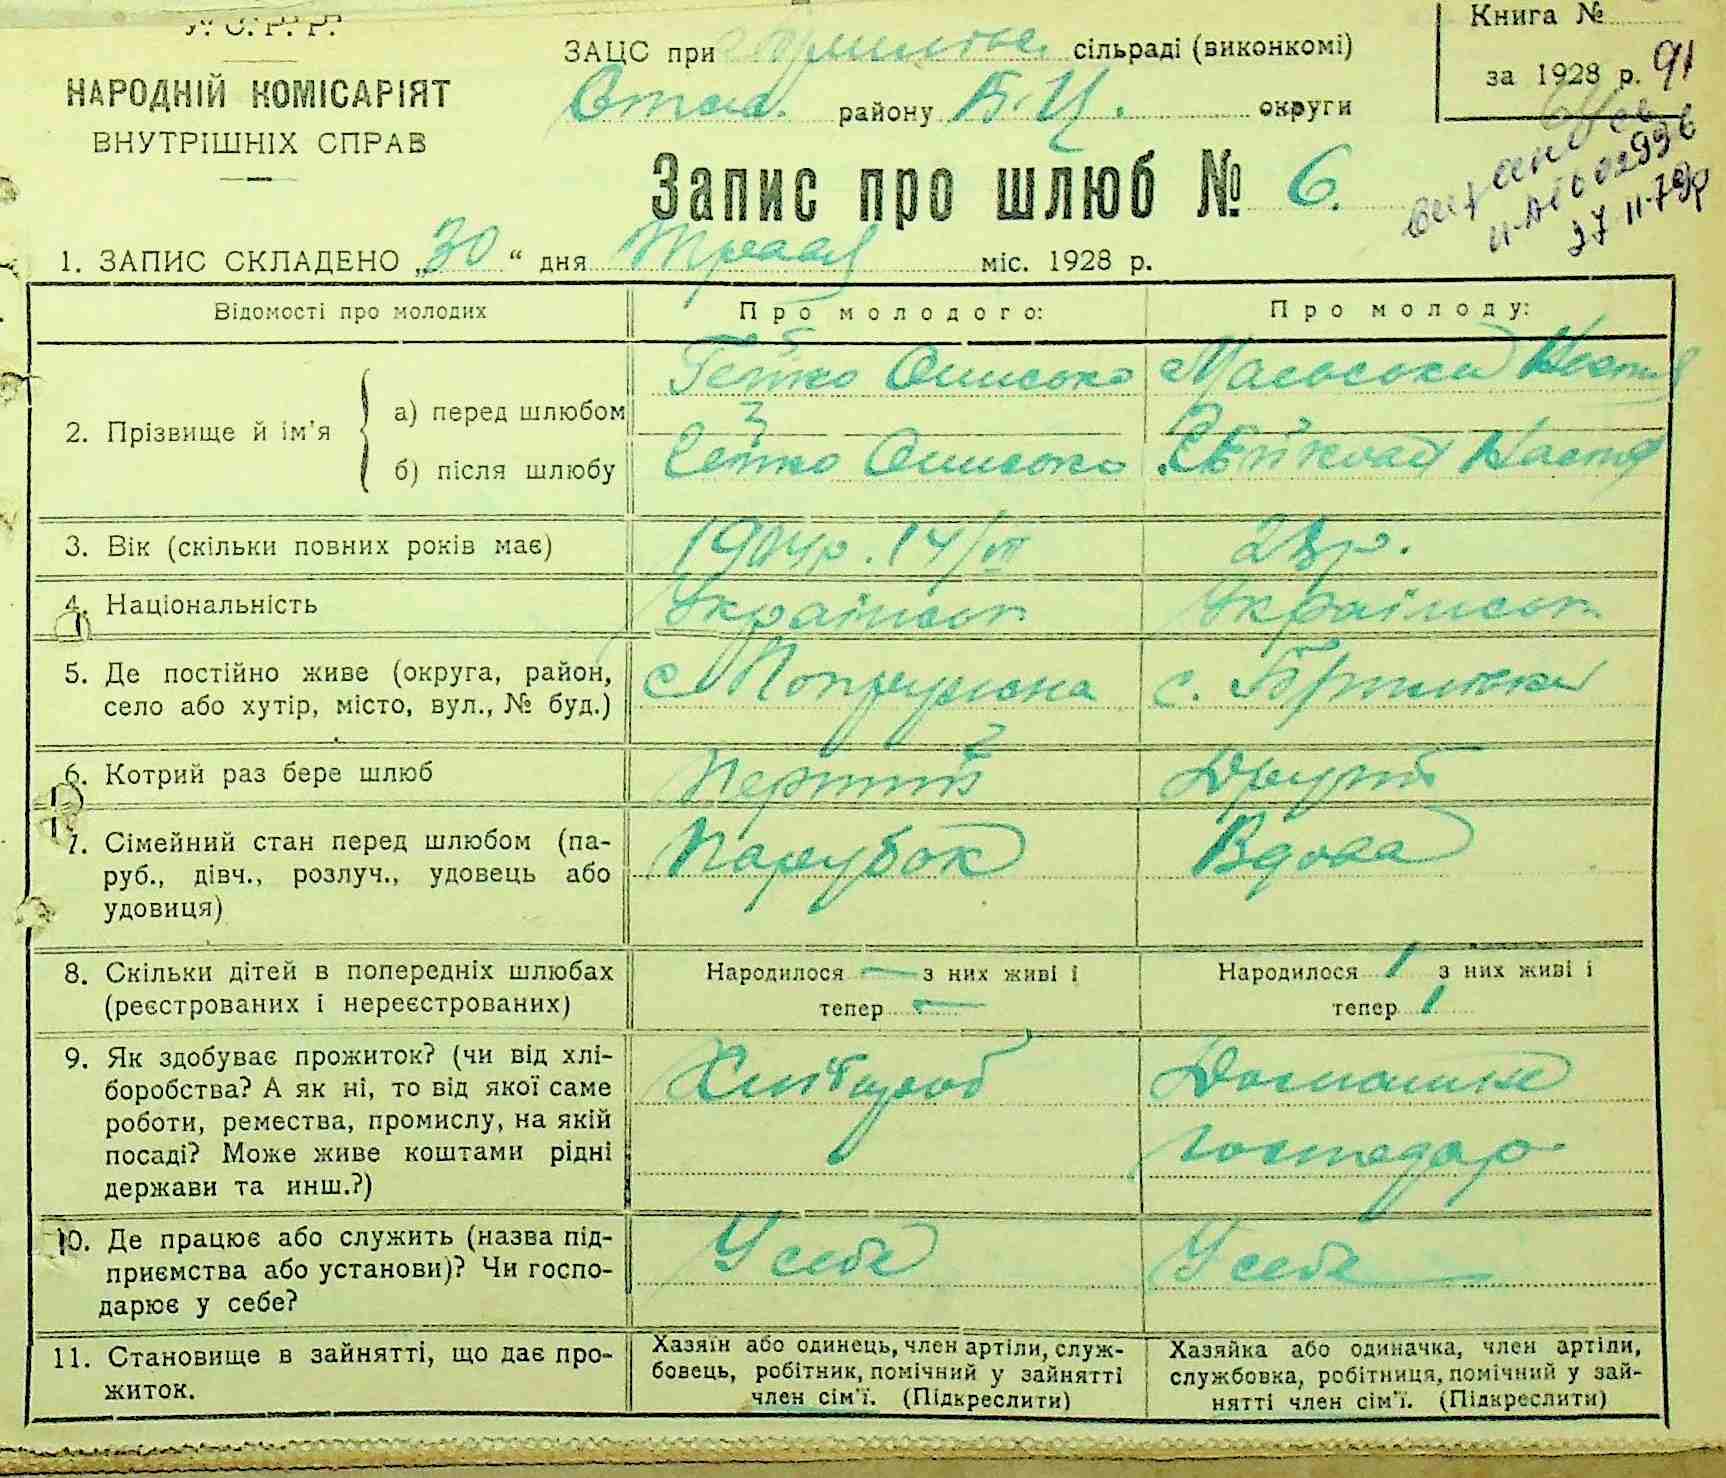 У. С. Р. Р.
НАРОДНІЙ КОМІСАРІЯТ
ВНУТРІШНІХ СПРАВ
ЗАЦС при сільраді (виконкомі)
району Б.Ц. округи
Книга №
за 1928 р. 91
27 II-79р
Запис про шлюб № 6.
1. ЗАПИС СКЛАДЕНО „30“ дня Травня міс. 1928 р.
Відомості про молодих
Про молодого:
Про молоду:
2. Прізвище й ім'я
а) перед шлюбом
Гейко Онисько
Настя
б) після шлюбу
Гейко Онисько
Настя
3. Вік (скільки повних років має)
1904р. 14/VII
23р.
4. Національність
Українськ
Українськ
5. Де постійно живе (округа, район,
село або хутір, місто, вул., № буд.)
с Попружна
с.
6. Котрий раз бере шлюб
Перший
Другий
7. Сімейний стан перед шлюбом (па-
руб., дівч., розлуч., удовець або
удовиця)
Парубок
Вдова
8. Скільки дітей в попередніх шлюбах
(реєстрованих і нереєстрованих)
Народилося — з них живі і
тепер —
Народилося 1 з них живі і
тепер 1
9. Як здобуває прожиток? (чи від хлі-
боробства? А як ні, то від якої саме
роботи, ремества, промислу, на якій
посаді? Може живе коштами рідні
держави та инш.?)
Хлібороб
Домашнє
господар
10. Де працює або служить (назва під-
приємства або установи)? Чи госпо-
дарює у себе?
У себе
У себе
11. Становище в зайнятті, що дає про-
житок.
Хазяїн або одинець, член артіли, служ-
бовець, робітник, помічний у зайнятті
член сім'ї. (Підкреслити)
Хазяйка або одиначка, член артіли,
службовка, робітниця, помічний у зай-
нятті член сім'ї. (Підкреслити)